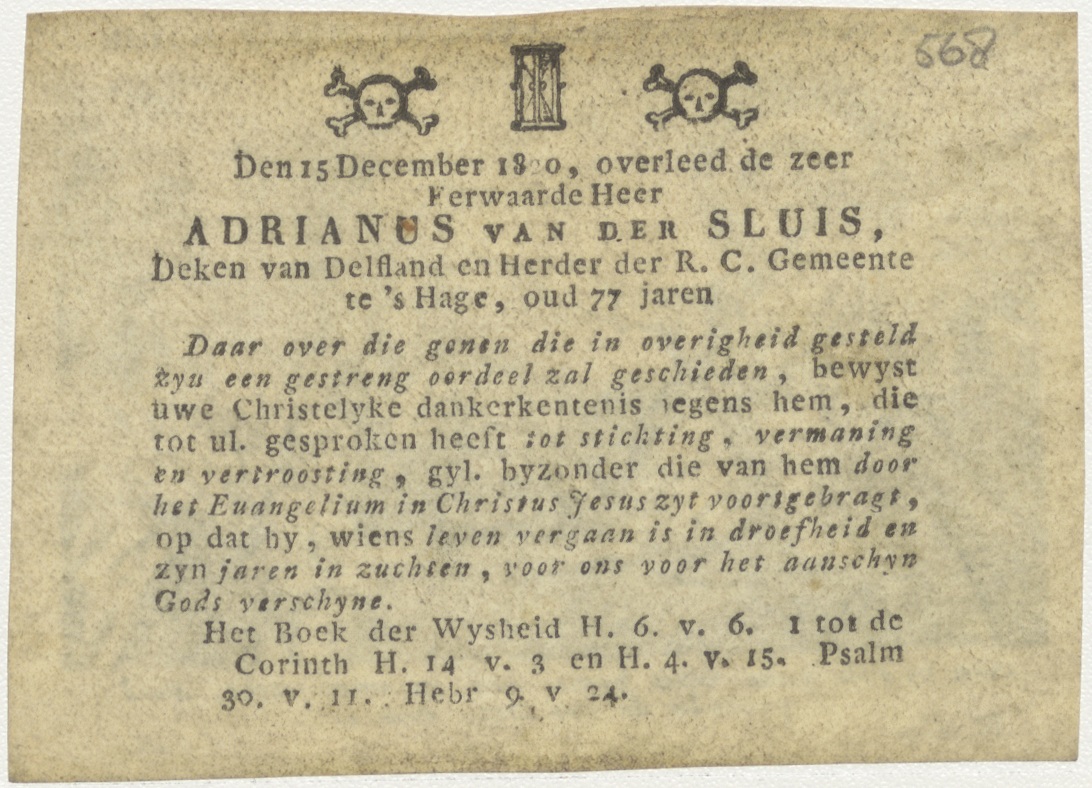 568
Den 15 December 18 0, overleed de zeer
Eerwaarde Heer
ADRIANUS VAN DER SLUIS,
Deken van Delfland en Herder der R. C. Gemeente
te 's Hage, oud 77 jaren
Daar over die genen die in overigheid gesteld
zyn een gestreng oordeel zal geschieden, bewyst
uwe Christelyke dankerkentenis jegens hem, die
tot ul. gesproken heeft tot stichting, vermaning
en vertroosting, gyl. byzonder die van hem door
het Euangelium in Christus Jesus zyt voortgebragt,
op dat hy, wiens leven vergaan is in droefheid en
zyn jaren in zuchten, voor ons voor het aanschyn
Gods verschyne.
Het Boek der Wysheid H. 6. v. 6. 1 tot de
Corinth H. 14 v. 3 en H. 4. v. 15. Psalm
30. v. 11. Hebr 9. v 24.